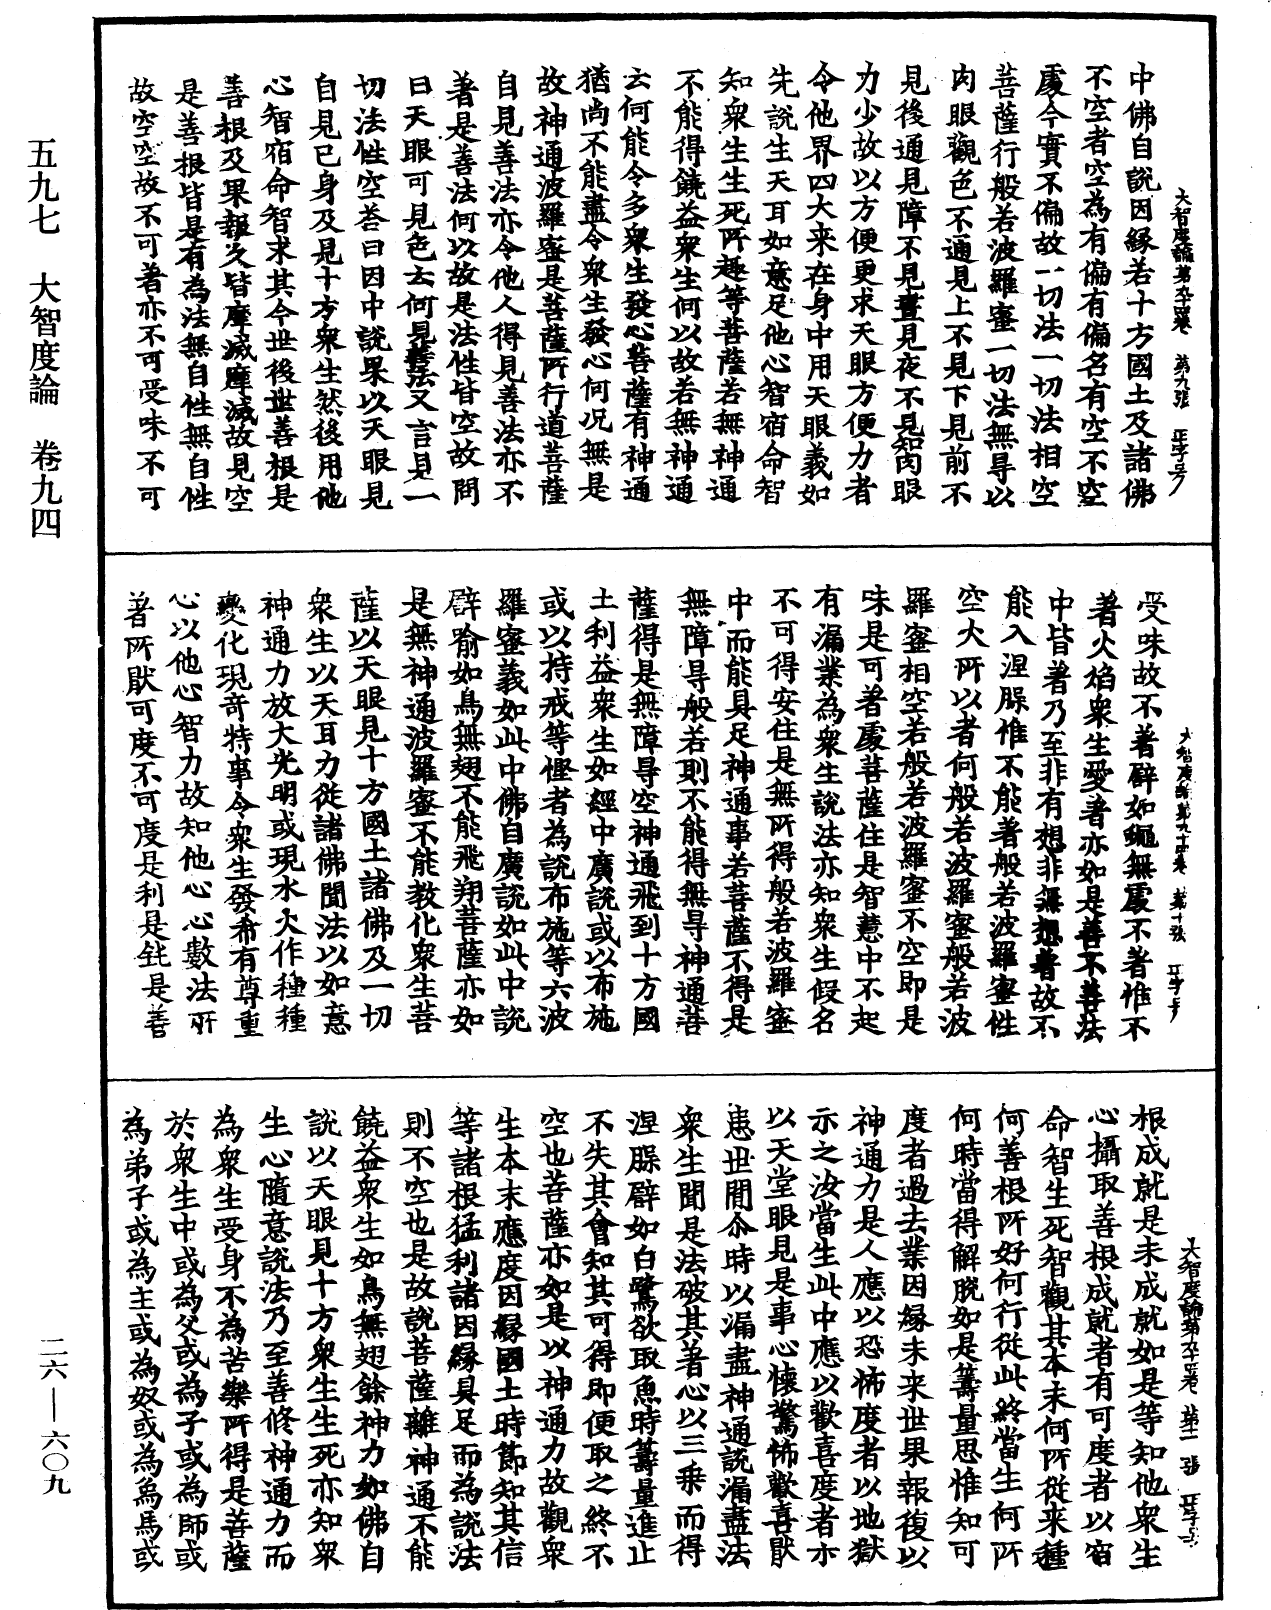 大智度論第九十四卷 第九張
中佛自說因緣若十方國土及諸佛
不空者空為有偏有偏名有空不空
處今實不偏故一切法一切法相空
菩薩行般若波羅蜜一切法無㝵以
肉眼觀色不通見上不見下見前不
見後通見障不見晝見夜不見知肉眼
力少故以方便更求天眼方便力者
令他界四大来在身中用天眼義如
先說生天耳如意足他心智宿命智
知衆生生死所趣等菩薩若無神通
不能得饒益衆生何以故若無神通
云何能令多衆生發心菩薩有神通
猶尚不能盡令衆生發心何况無是
故神通波羅蜜是菩薩所行道菩薩
自見善法亦令他人得見善法亦不
著是善法何以故是法性皆空故問
曰天眼可見色云何見善法又言見一
切法性空荅曰因中說果以天眼見
自見已身及見十方衆生然後用他
心智宿命智求其今世後世善根是
善根及果報久皆摩滅摩滅故見空
是善根皆是有為法無自性無自性
故空空故不可著亦不可受味不可
大智度論第九十四卷 第十張
受味故不著辟如蠅無處不著惟不
著火焰衆生愛著亦如是善不善法
中皆著乃至非有想非無想著故不
能入涅脲惟不能著般若波羅蜜性
空大所以者何般若波羅蜜般若波
羅蜜相空若般若波羅蜜不空即是
味是可著處菩薩住是智慧中不起
有漏業為衆生說法亦知衆生假名
不可得安住是無所得般若波羅蜜
中而能具足神通事若菩薩不得是
無障㝵般若則不能得無㝵神通菩
薩得是無障㝵空神通飛到十方國
土利益衆生如經中廣說或以布施
或以持戒等慳者為說布施等六波
羅蜜義如此中佛自廣說如此中說
辟喻如鳥無翅不能飛翔菩薩亦如
是無神通波羅蜜不能教化衆生菩
薩以天眼見十方國土諸佛及一切
衆生以天耳力從諸佛聞法以如意
神通力放大光明或現水火作種種
變化現奇特事令衆生發希有尊重
心以他心智力故知他心心數法所
著所猒可度不可度是利是鈍是善
大智度論第九十四卷 第十一張
根成就是未成就如是等知他衆生
心攝取善根成就者有可度者以宿
命智生死智觀其本末何所從来種
何善根所好何行從此終當生何所
何時當得解脫如是籌量思惟知可
度者過去業因緣未来世果報復以
神通力是人應以恐怖度者以地獄
示之汝當生此中應以歡喜度者亦
以天堂眼見是事心懷驚怖歡喜猒
患世間尒時以漏盡神通說漏盡法
衆生聞是法破其著心以三乗而得
涅脲辟如白鷺欲取魚時籌量進止
不失其會知其可得即便取之終不
空也菩薩亦如是以神通力故觀衆
生本末應度因緣國土時節知其信
等諸根猛利諸因緣具足而為說法
則不空也是故說菩薩離神通不能
饒益衆生如鳥無翅餘神力如佛自
說以天眼見十方衆生生死亦知衆
生心隨意說法乃至善修神通力而
為衆生受身不為苦樂所得是菩薩
於衆生中或為父或為子或為師或
為弟子或為主或為奴或為象馬或
五九七 大智度論 卷九四
二六—六〇九